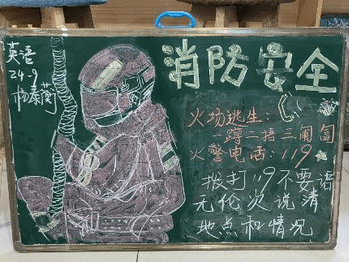 英语
24-9
杨森茵
消防安全
火场逃生:
一蹲二捂三匍匐
火警电话:119
拨打119不要语
无伦次说清
地点和情况